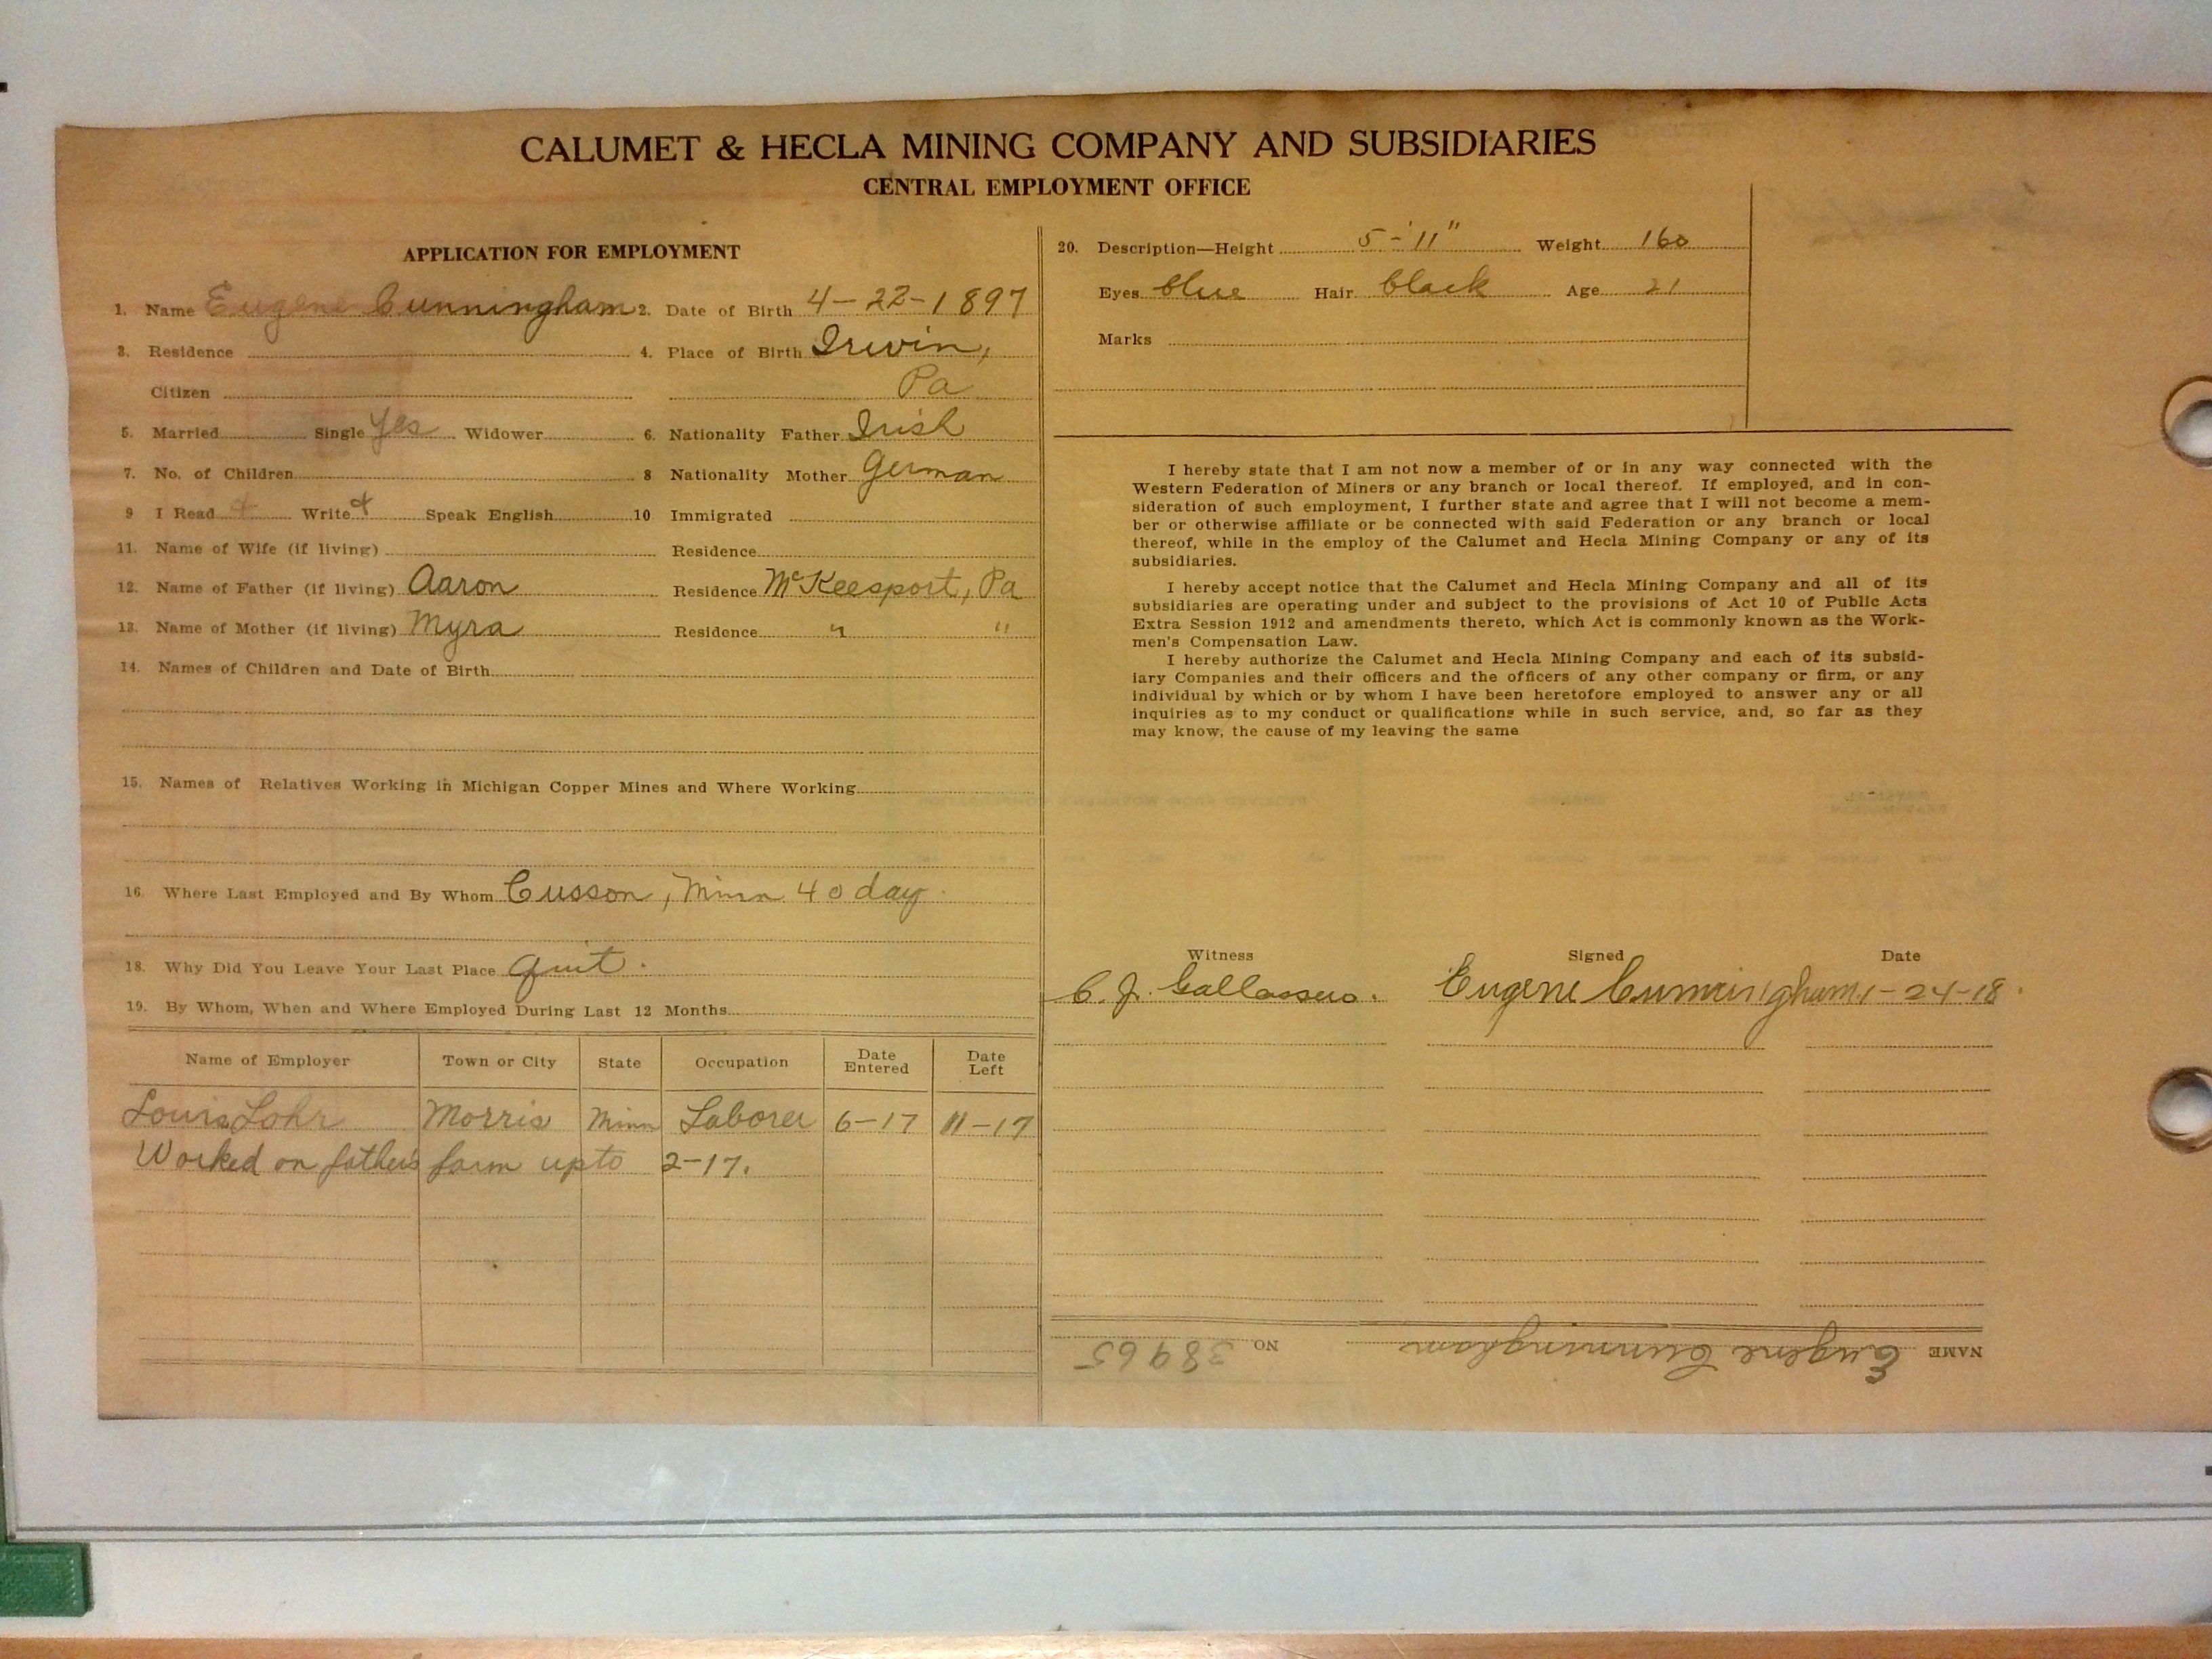 CALUMET & HECLA MINING COMPANY AND SUBSIDIARIES
CENTRAL EMPLOYMENT OFFICE
APPLICATION FOR EMPLOYMENT
1. Name Eugene Cunningham 2. Date of Birth 4-22-1897
3. Residence 4. Place of Birth Irwin,
Citizen Pa
5. Married Single Yes Widower 6. Nationality Father Irish
7. No. of Children 8 Nationality Mother German
9 I Read + Write + Speak English 10 Immigrated
11. Name of Wife (if living) Residence
12. Name of Father (if living) Aaron Residence McKeesport, Pa
13. Name of Mother (if living) Myra Residence " "
14. Names of Children and Date of Birth
15. Names of Relatives Working in Michigan Copper Mines and Where Working
16. Where Last Employed and By Whom Cusson, Minn 40 day
18. Why Did You Leave Your Last Place Quit.
19. By Whom, When and Where Employed During Last 12 Months
Name of Employer Town or City State Occupation Date Entered Date Left
Louis Lohr Morris Minn Laborer 6-17 11-17
Worked on father's farm up to 2-17.
20. Description—Height 5-'11" Weight 160
Eyes blue Hair black Age 21
Marks
I hereby state that I am not now a member of or in any way connected with the
Western Federation of Miners or any branch or local thereof. If employed, and in con-
sideration of such employment, I further state and agree that I will not become a mem-
ber or otherwise affiliate or be connected with said Federation or any branch or local
thereof, while in the employ of the Calumet and Hecla Mining Company or any of its
subsidiaries.
I hereby accept notice that the Calumet and Hecla Mining Company and all of its
subsidiaries are operating under and subject to the provisions of Act 10 of Public Acts
Extra Session 1912 and amendments thereto, which Act is commonly known as the Work-
men's Compensation Law.
I hereby authorize the Calumet and Hecla Mining Company and each of its subsid-
iary Companies and their officers and the officers of any other company or firm, or any
individual by which or by whom I have been heretofore employed to answer any or all
inquiries as to my conduct or qualifications while in such service, and, so far as they
may know, the cause of my leaving the same
Witness Signed Date
C. J. Eugene Cunningham 1-24-18.
NAME Eugene Cunningham NO. 38965